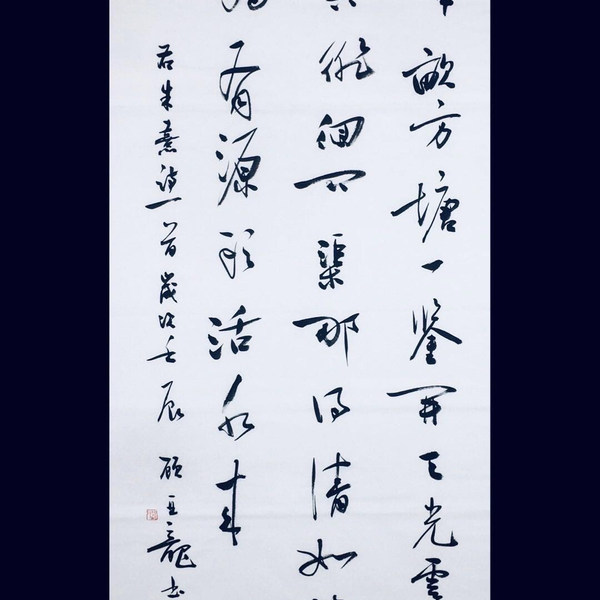 畝方塘一鑒開天光雲
徘徊問渠那得清如
有源頭活水來
右朱熹詩一首歲次壬辰顧亞龍書